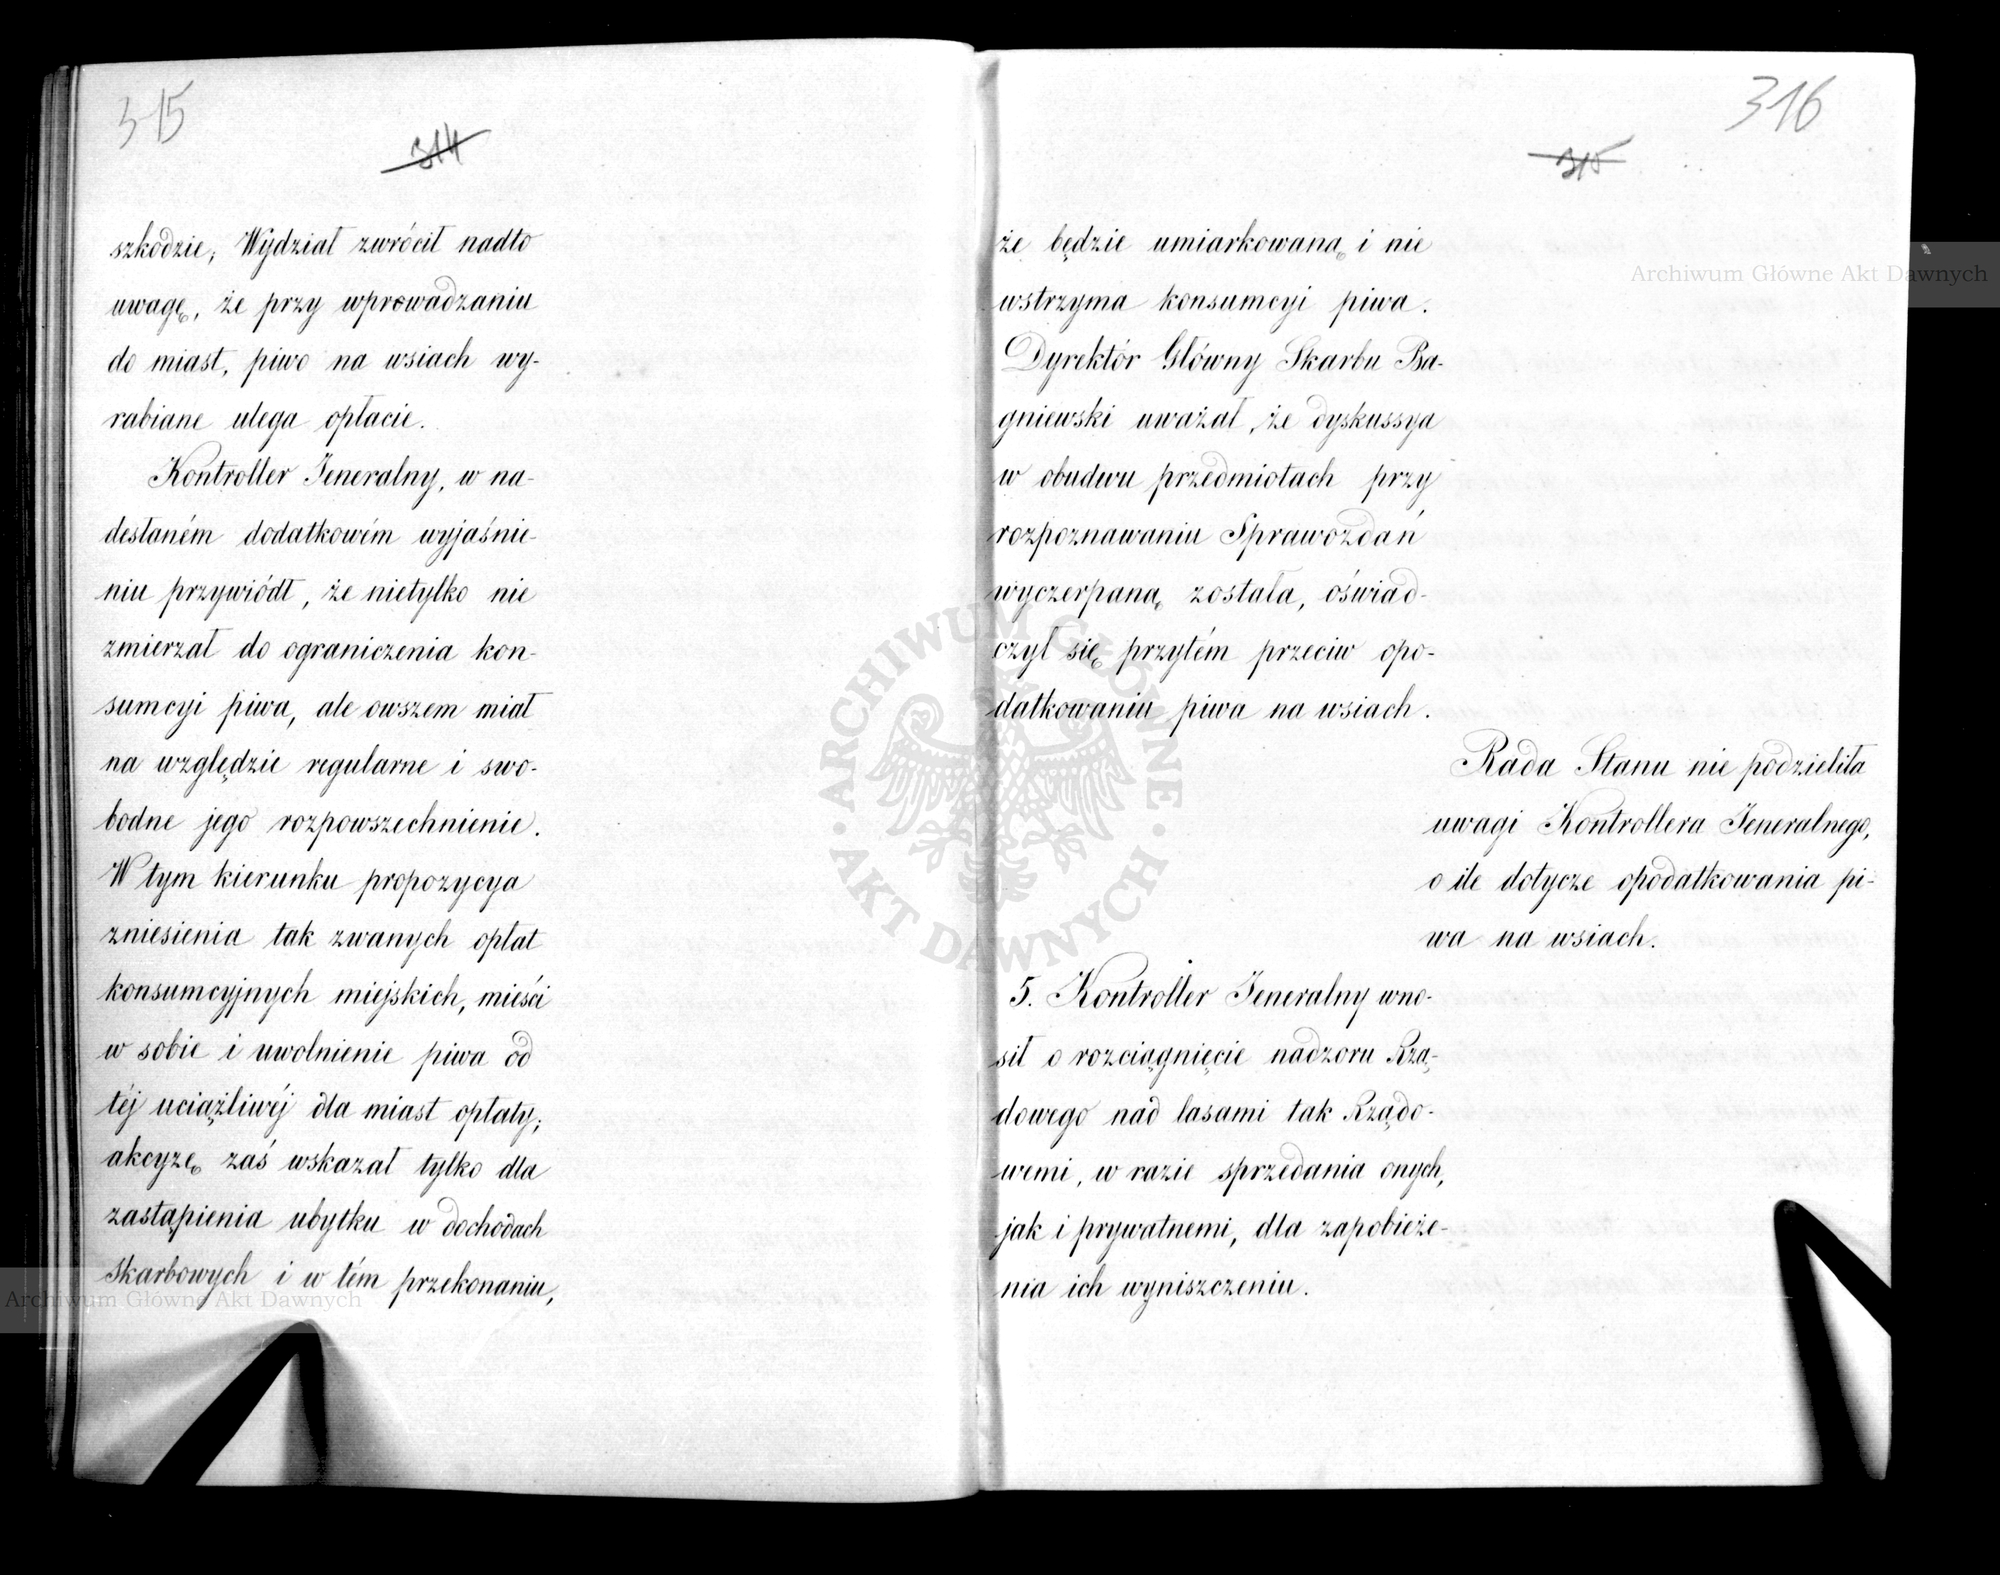 315
314
szkodzie; Wydział zwrócił nadto
uwagę, że przy wprowadzaniu
do miast, piwo na wsiach wy-
rabiane ulega opłacie.
Kontroller Jeneralny, w na-
desłaném dodatkowém wyjaśnie-
niu przywiódł, że nietylko nie
zmierzał do ograniczenia kon-
sumcyi piwa, ale owszem miał
na względzie regularne i swo-
bodne jego rozpowszechnienie.
W tym kierunku propozycya
zniesienia tak zwanych opłat
konsumcyjnych miejskich, mieści
w sobie i uwolnienie piwa od
téj uciążliwéj dla miast opłaty;
akcyzę zaś wskazał tylko dla
zastąpienia ubytku w dochodach
skarbowych i w tém przekonaniu,
316
315
że będzie umiarkowaną i nie
wstrzyma konsumcyi piwa.
Dyrektór Główny Skarbu Ba-
gniewski uważał, że dyskussya
w obudwu przedmiotach przy
rozpoznawaniu Sprawozdań
wyczerpaną została, oświad-
czył się przytém przeciw opo-
datkowaniu piwa na wsiach.
Rada Stanu nie podzieliła
uwagi Kontrollera Jeneralnego,
o ile dotycze opodatkowania pi-
wa na wsiach.
5. Kontroller Jeneralny wno-
sił o rozciągnięcie nadzoru Rzą-
dowego nad lasami tak Rządo-
wemi, w razie sprzedania onych,
jak i prywatnemi, dla zapobieże-
nia ich wyniszczeniu.
Archiwum Główne Akt Dawnych
Archiwum Główne Akt Dawnych
ARCHIWUM GŁÓWNE
AKT DAWNYCH